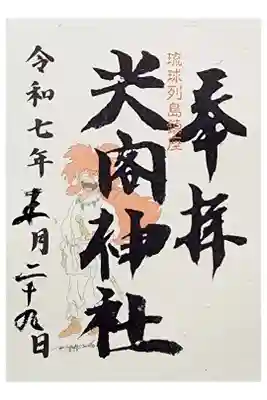 奉拝
琉球列島鎮座
尖閣神社
令和七年 月二十九日